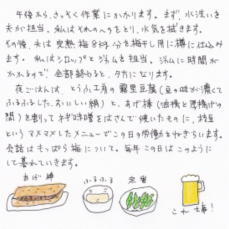 午後から、さっそく作業にかかります。まず、水洗いを
夫が担当。私はそれのヘタをとり、水気を拭きます。
その後、夫は完熟梅8キロ分を梅干し用に樽に仕込み
ます。私はシロップとジャムを担当。ジャムに時間が
かかるので、全部終わると、夕方になります。
夜ごはんは、とうふ工房の豆腐（豆の味が濃くて
ふるふるした、おいしい絹）と、あげ棒（油揚と厚揚げの
間）を割って ネギ味噌をはさんで焼いたもの に、枝豆
というマメマメしたメニューでこの日の労働をねぎらいます。
会話はもっぱら梅について。毎年この日はこのように
して暮れていきます。
あげ棒
ふるふる
定番
これ大事！